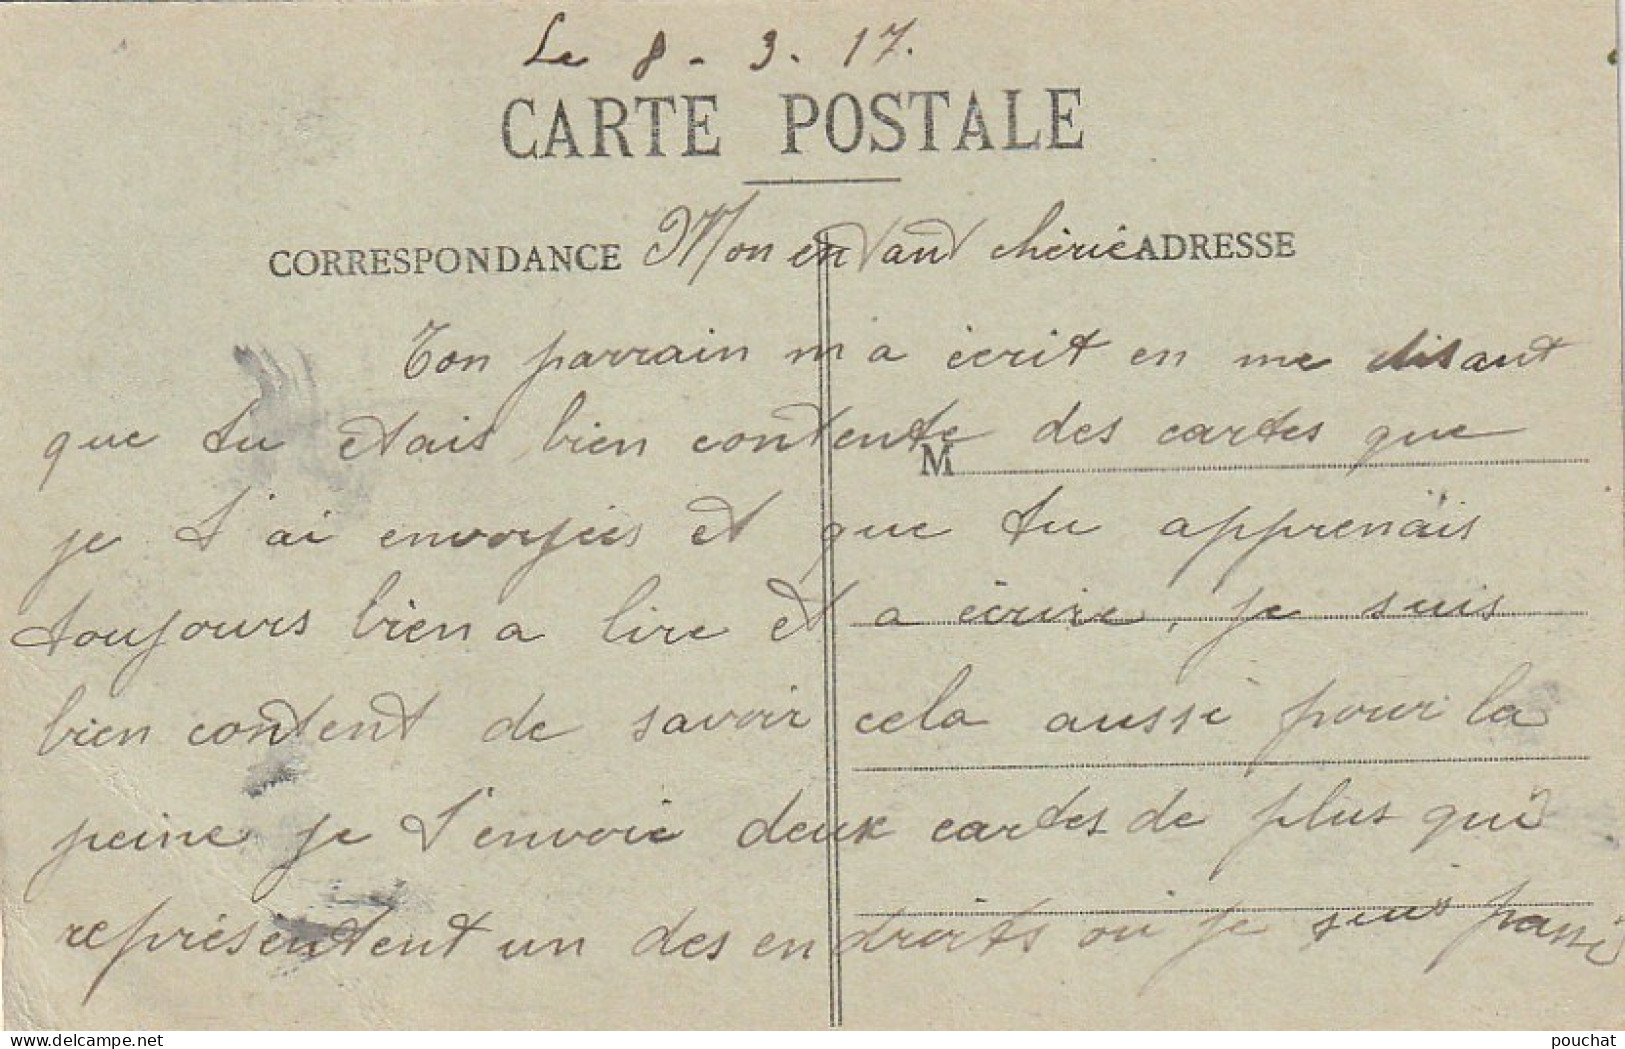 Le 8 - 3. 17.
CARTE POSTALE
CORRESPONDANCE Mon enfant chérie ADRESSE
Ton parrain m'a écrit en me disant
que tu etais bien contente des cartes que
M
je t'ai envoyées et que tu apprenais
toujours bien a lire et a écrire, je suis
bien content de savoir cela aussi pour la
peine je t'envoie deux cartes de plus qui
représentent un des endroits ou je suis passé
delcampe.net
pouchat